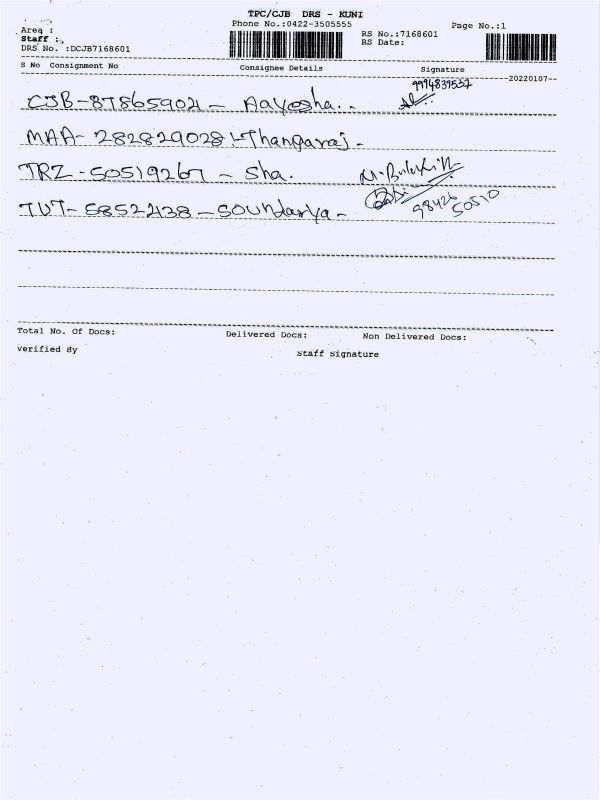 TPC/CJB DRS - KUNI
Phone No.:0422-3505555 Page No.:1
Area :
Staff :
DRS No. :DCJB7168601
RS No.:7168601
RS Date:
S No Consignment No Consignee Details Signature
20220107
CJB-878659021 - Aayesha.. 9994839537
MAA-282829028 - Thangaraj -
TRZ-50519267 - Sha.
TUT-58522138 - Soundarya - 98426 50510
Total No. Of Docs: Delivered Docs: Non Delivered Docs:
verified By Staff Signature